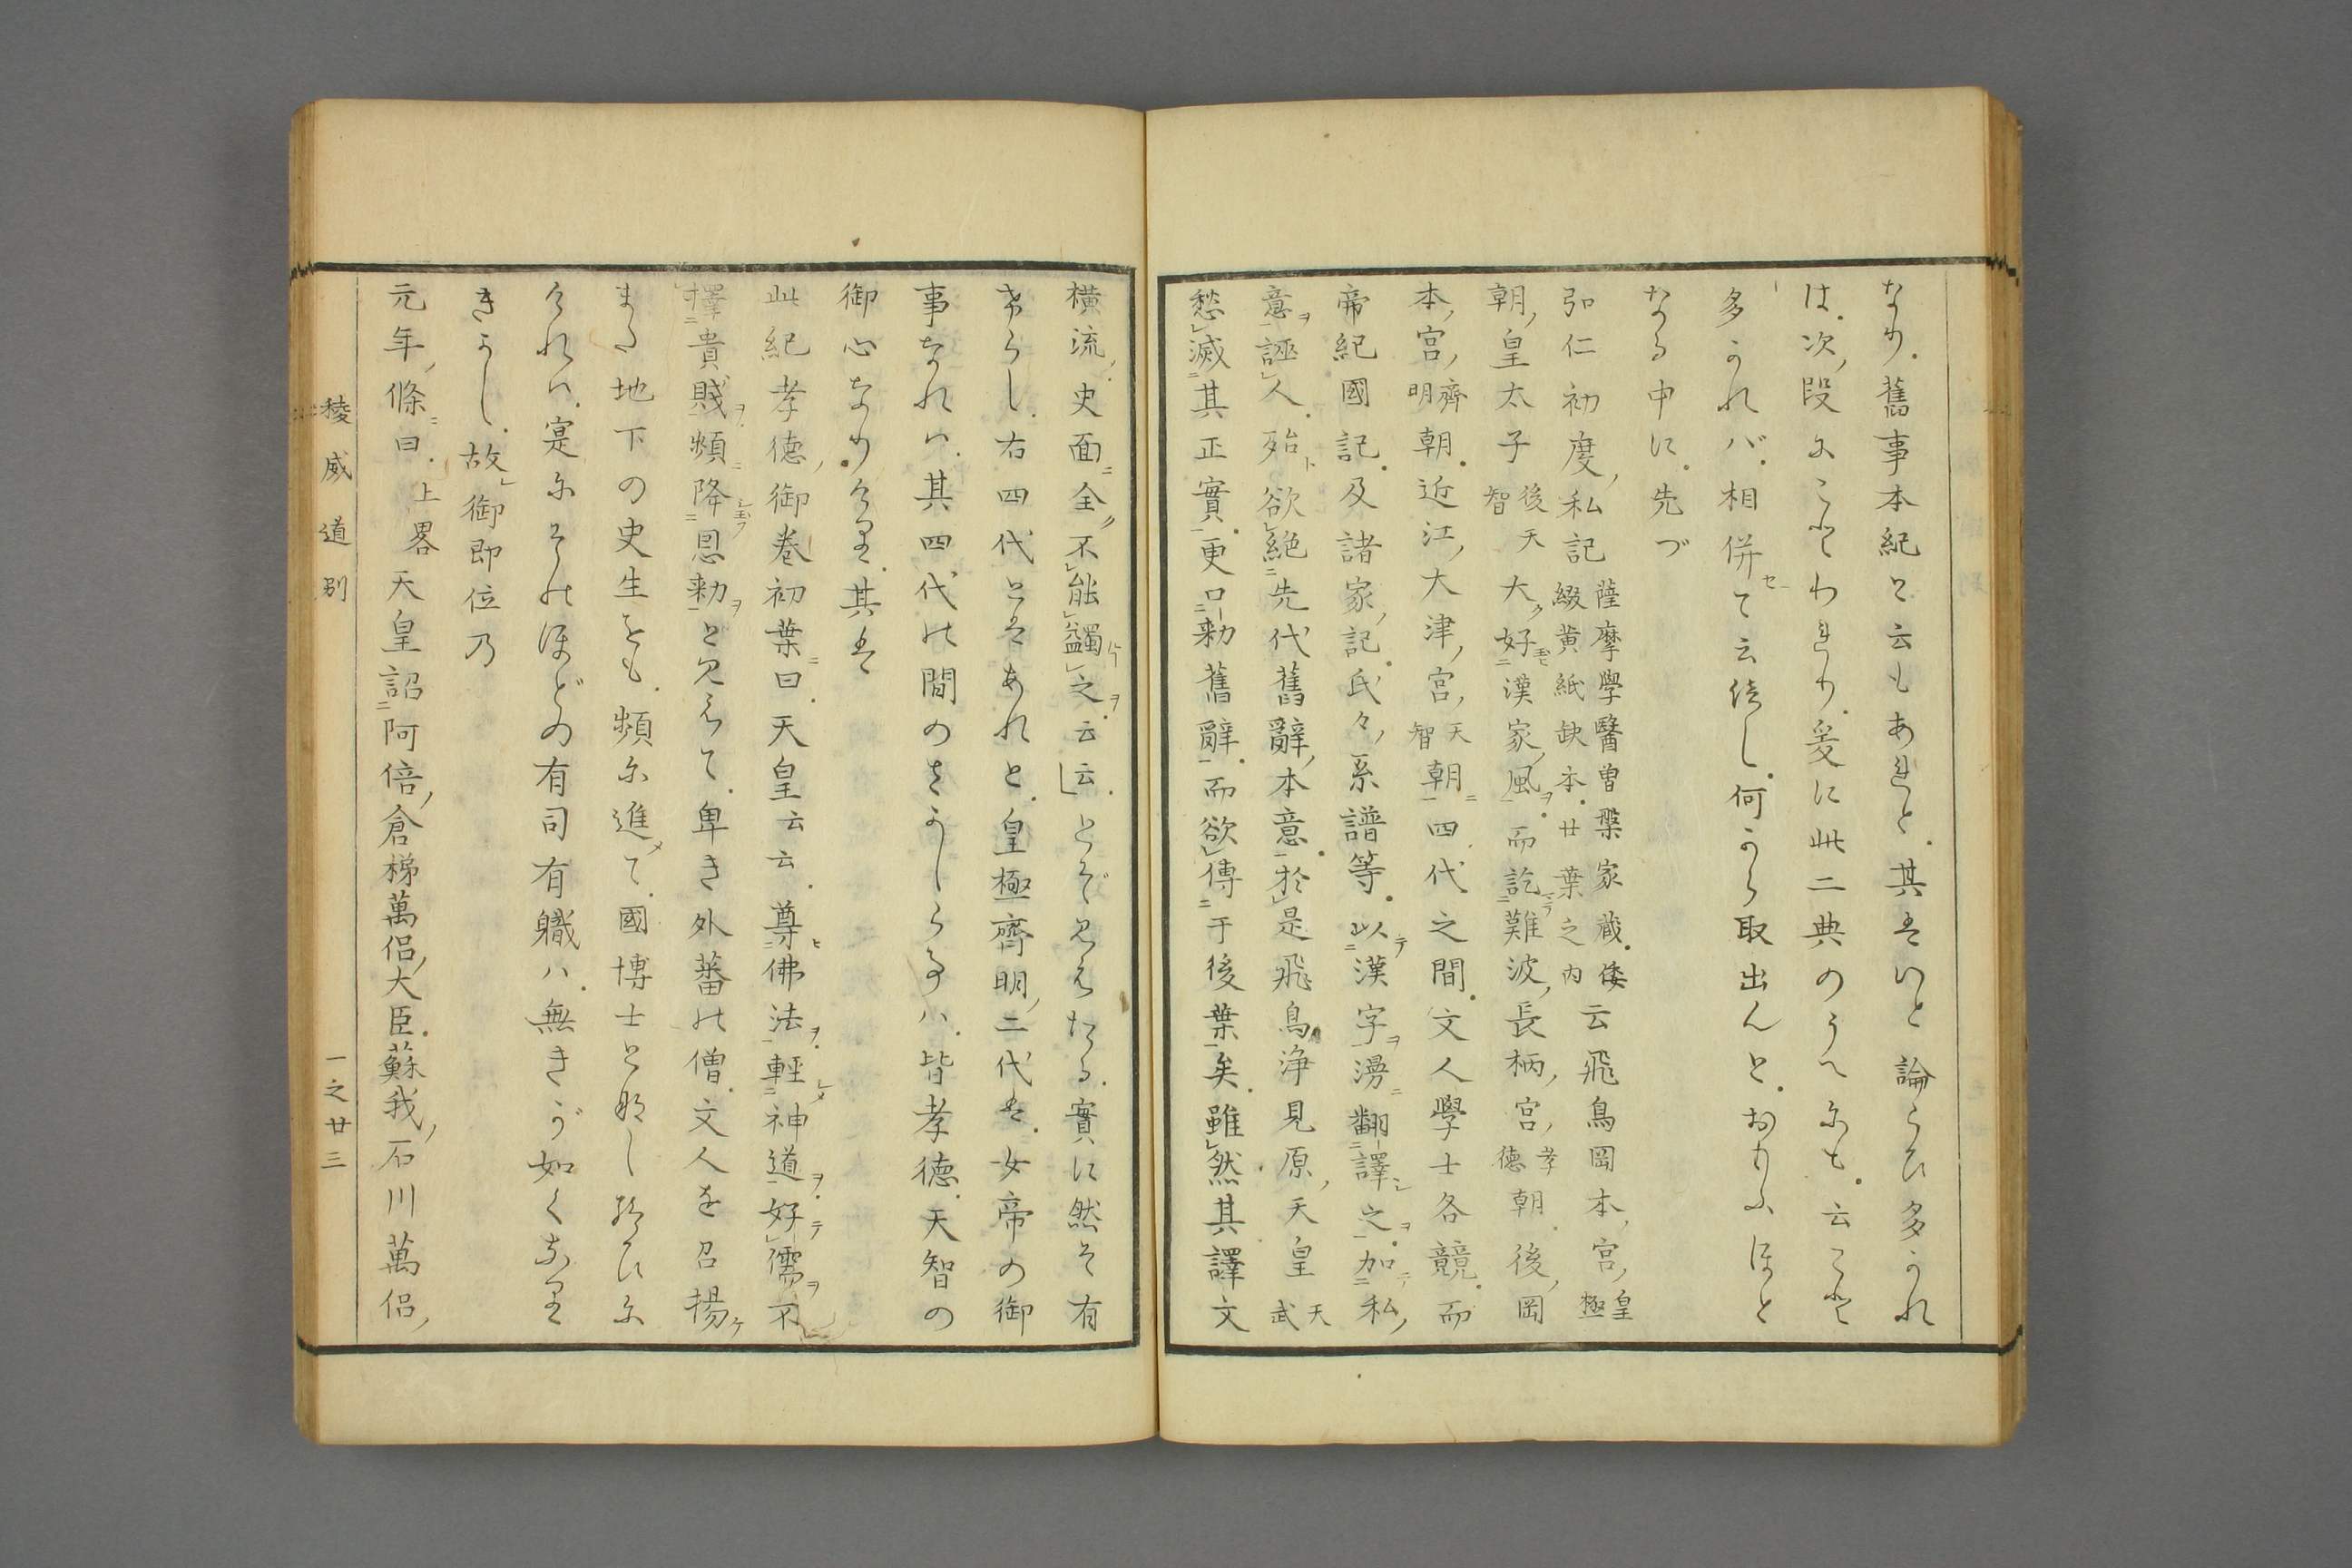 なり。舊事本紀と云もあれど。其はいと論ひ多かれ
は。次ノ段にことわれり。爰に此二典のうへにも。云こと
多かれバ。相併セて云べし。何から取出んと。おもふほど
なる中に。先づ
弘仁初度ノ私記 薩摩學醫曽槃家蔵。倭綴黄紙缺本。廿葉之内 云飛鳥岡本ノ宮ノ 皇極
朝ノ皇太子 後天智 大ク好漢家ノ風ヲ。而訖難波ノ長柄ノ宮ノ 孝德 朝。後ノ岡
本ノ宮ノ 齊明 朝。近江ノ大津ノ宮ノ 天智 朝ニ四代之間。文人學士各競。而
帝紀國記。及諸家ノ記。氏々ノ系譜等。以テ漢字ヲ湯ニ翻譯シ之ヲ。加テ私ノ
意ヲ誣人。殆ト欲絶先代舊辭ノ本意。於是飛鳥浄見原ノ天皇 天武
愁滅其正實。更口勅舊辭。而欲傳于後葉矣。雖然其譯文
横流ノ。史面ニ全ク不能蠲之ヲ。云云。とぞ見えたる。實に然そ有
けらし。右四代とはあれと。皇極齊明ノ二代は。女帝の御
事なれハ。其四代の間のさかしらハ。皆孝德。天智の
御心なりけり。其は
此紀孝德ノ御巻初葉ニ曰。天皇云云。尊ヒ佛法ヲ。輕シメ神道ヲ。好テ儒ヲ不
擇貴賤ヲ。頻ニ降恩勅ヲと見えて。卑き外蕃の僧。文人を召揚ケ
また地下の史生をも。頻に進メて。國博士と為し給ひに
けれハ。寔にそのほどの有司有職ハ。無きが如くなり
きかし。故御即位乃
元年ノ條ニ曰。上畧 天皇詔阿倍ノ倉梯萬侶ノ大臣。蘇我ノ石川萬侶ノ
稜威道別
一之廿三